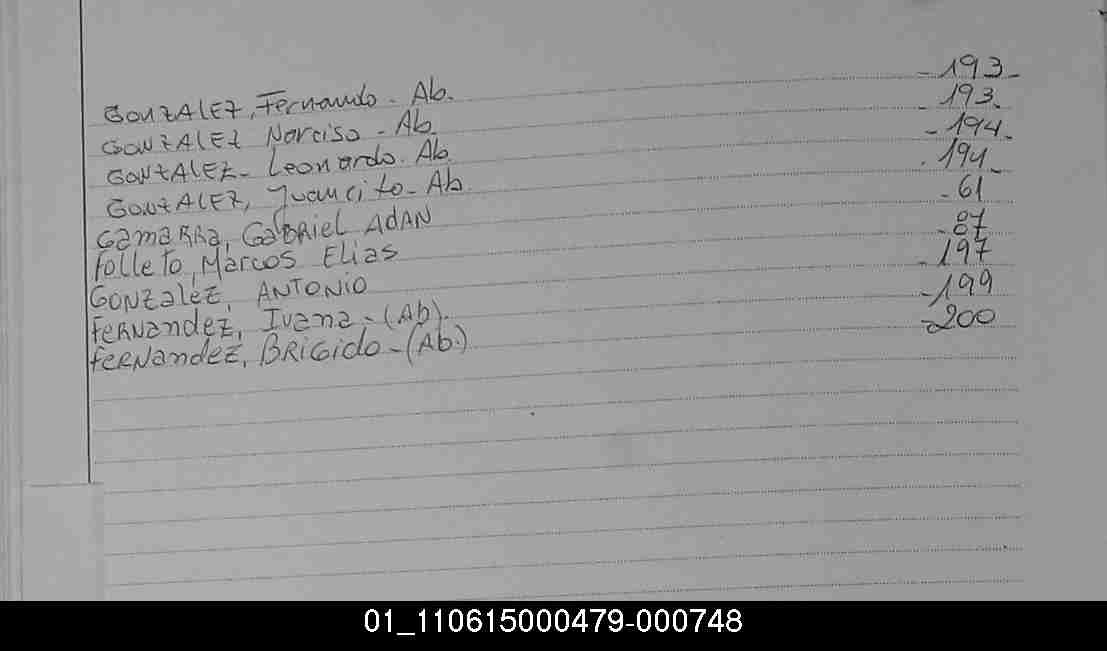 GONZALEZ, Fernando - Ab. - 193 -
GONZALEZ Narciso - Ab. - 193.
GONZALEZ - Leonardo. Ab. - 194 -
GONZALEZ, Juancito - Ab. - 194 -
GAMARRA, GABRIEL ADAN - 61
Folleto, Marcos Elias - 87
GONZALEZ, ANTONIO - 197
FERNANDEZ, Ivana - (Ab). - 199
FERNANDEZ, BRIGIDO - (Ab.) - 200
01_110615000479-000748